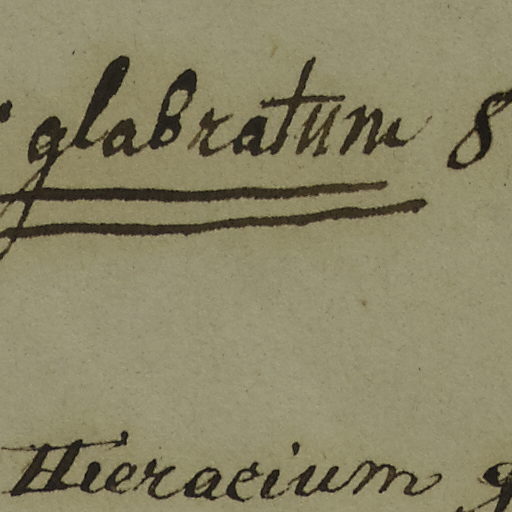 glabratum 8
Hieracium g